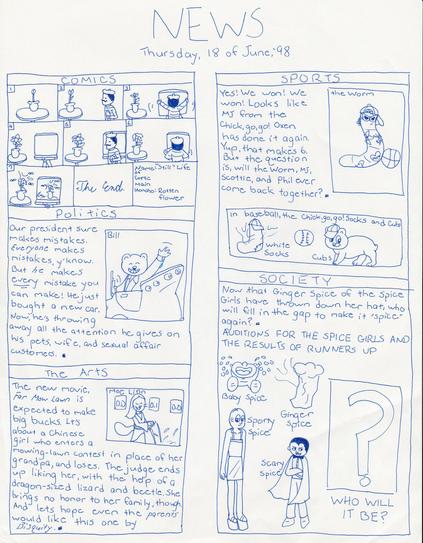 NEWS
Thursday, 18 of June, '98
COMICS
1
2
3
4
5
6
7
The End
Name: "Still" Life
Main
Rotten
flower
Politics
Our president sure
makes mistakes.
Everyone makes
mistakes, y'know.
But he makes
every mistake you
can make! He just
bought a new car.
Now, he's throwing
away all the attention he gives on
his pets, wife, and sexual affair
customer.
Bill
The Arts
The new movie,
for Mow Lawn is
expected to make
big bucks. It's
about a Chinese
girl who enters a
mowing-lawn contest in place of her
grandpa, and loses. The judge ends
up liking her, with the help of a
dragon-sized lizard and beetle. She
brings no honor to her family, though.
And lets hope even the parents
would like this one by
0.0
0.1
0.0
SPORTS
Yes! We won! We
won! Looks like
MJ from the
Chick, go, go! Oxen
has done it again
Yup, that makes 6.
But the question
is, will the Worm, MJ,
Scottie, and Phil ever
come back together?
the Worm
In baseball, the Chick, go, go! Socks and Cubs
White
Socks
Cubs
SOCIETY
Now that Ginger Spice of the Spice
Girls have thrown down her hat, who
will fill in the gap to make it "spice"
again?
AUDITIONS FOR THE SPICE GIRLS AND
THE RESULTS OF RUNNERS UP
Baby Spice
Ginger
Spice
Sporty
Spice
Scary
Spice
?
WHO WILL
IT BE?